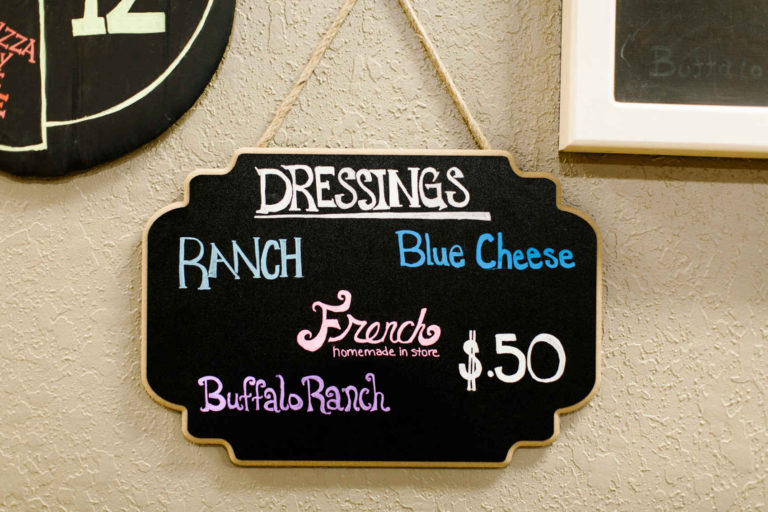 ZZA
12
Buffalo
DRESSINGS
RANCH
Blue Cheese
French
homemade in store
$.50
Buffalo Ranch